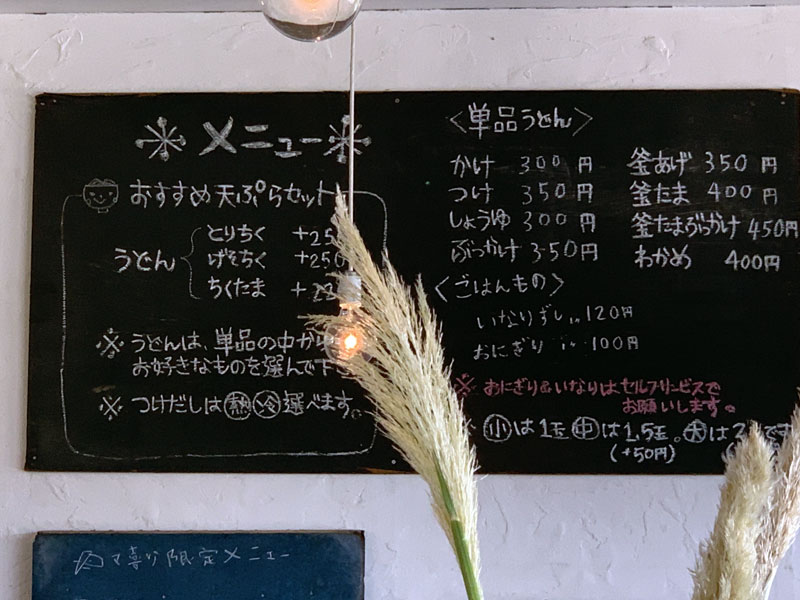 メニュー
おすすめ天ぷらセット
うどん
とりちく +25
げそちく +250
ちくたま +
※ うどんは、単品の中から
お好きなものを選んで下さ
※ つけだしは熱冷選べます。
〈単品うどん〉
かけ 300円
つけ 350円
しょうゆ 300円
ぶっかけ 350円
釜あげ 350円
釜たま 400円
釜たまぶっかけ 450円
わかめ 400円
〈ごはんもの〉
いなりずし 120円
おにぎり 100円
※ おにぎり&いなりはセルフサービスで
お願いします。
※ 小は1玉 中は1.5玉。大は2 です
(+50円)
限定メニュー